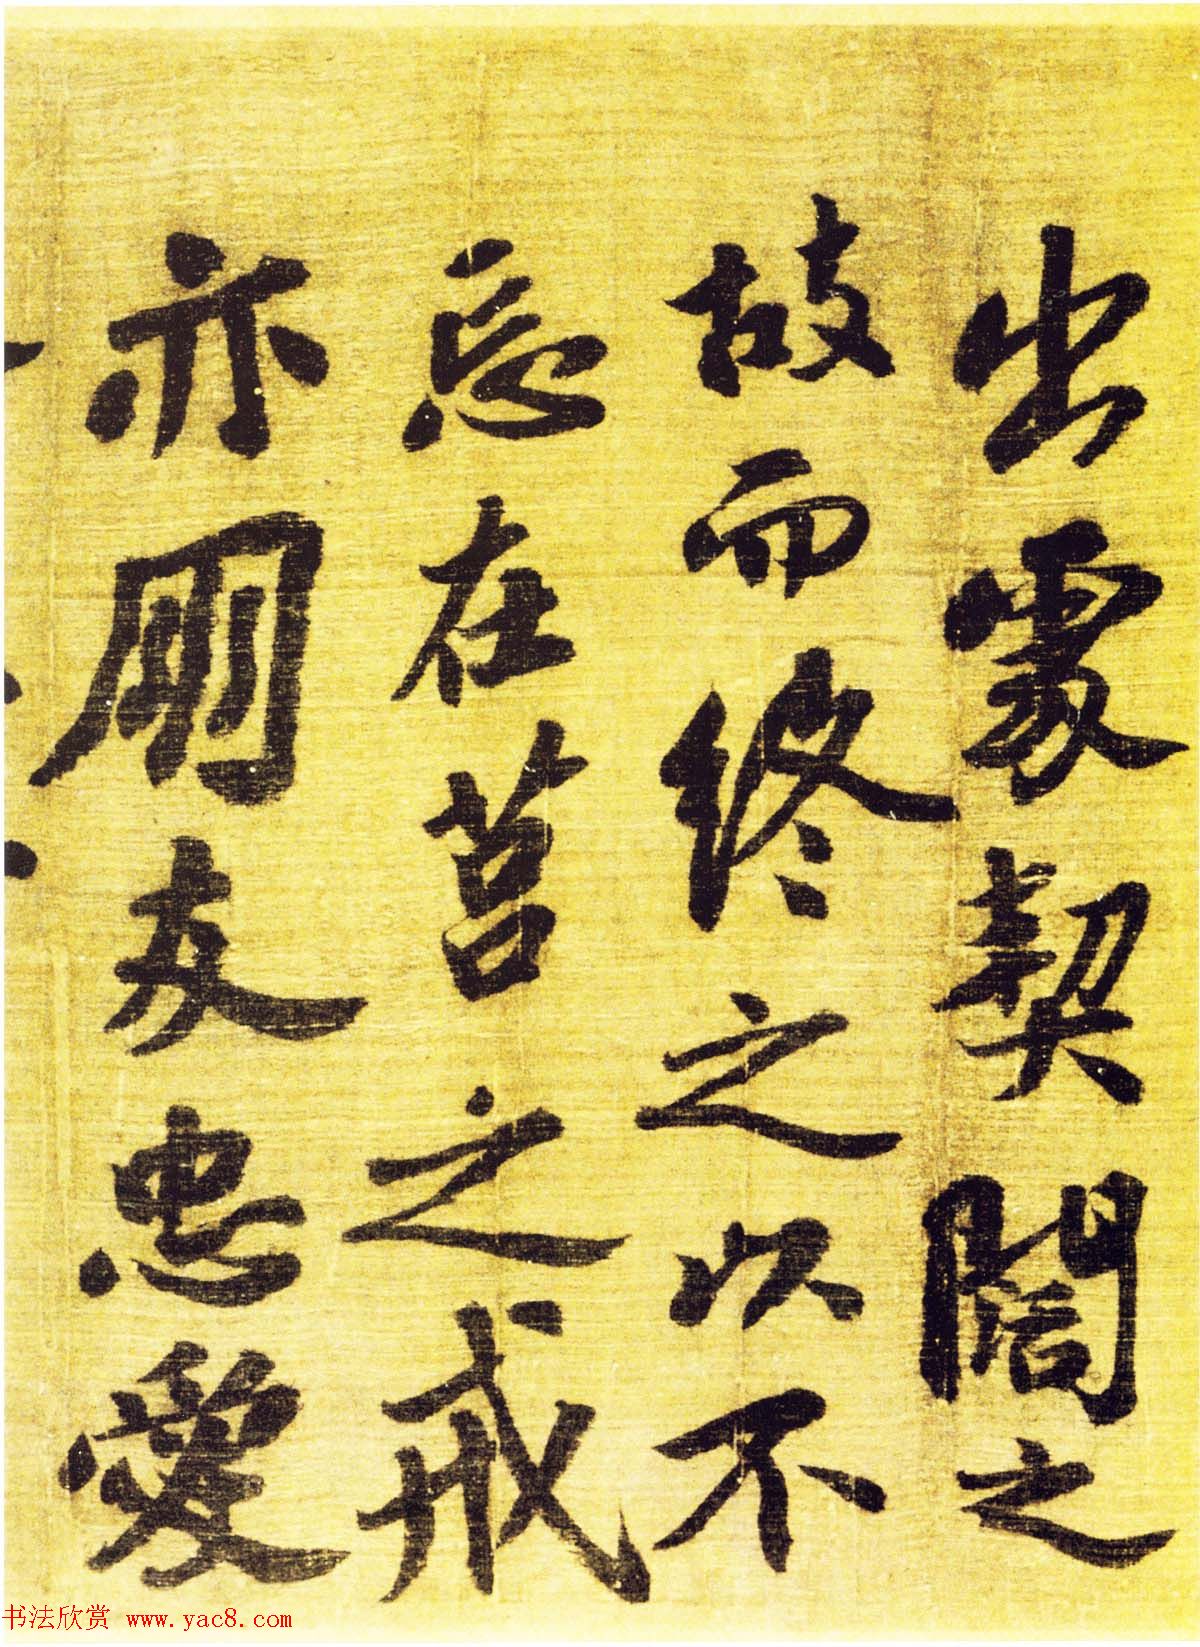 出處契闊之
故而終之以不
忘在莒之戒
亦朋友忠愛
书法欣赏 www.yac8.com